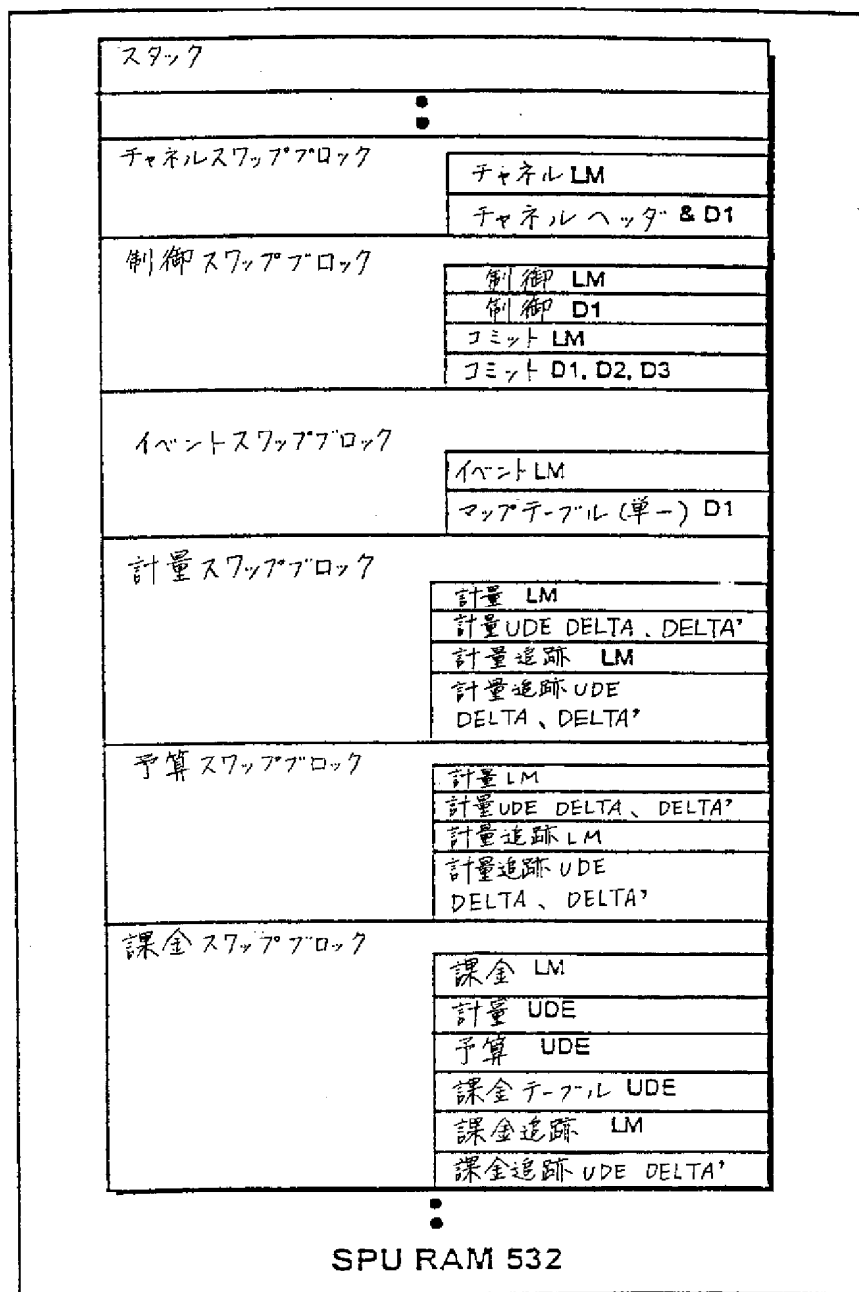 スタック
チャネルスワップブロック
チャネル LM
チャネルヘッダ & D1
制御スワップブロック
制御 LM
制御 D1
コミット LM
コミット D1, D2, D3
イベントスワップブロック
イベント LM
マップテーブル (単一) D1
計量スワップブロック
計量 LM
計量UDE DELTA、DELTA'
計量追跡 LM
計量追跡 UDE
DELTA、DELTA'
予算スワップブロック
計量 LM
計量UDE DELTA、DELTA'
計量追跡 LM
計量追跡 UDE
DELTA、DELTA'
課金スワップブロック
課金 LM
計量 UDE
予算 UDE
課金テーブル UDE
課金追跡 LM
課金追跡 UDE DELTA'
SPU RAM 532